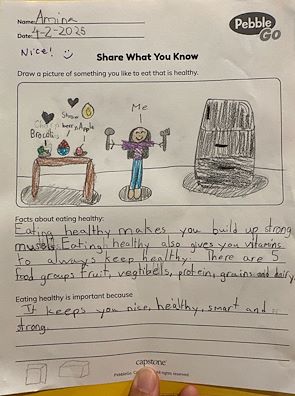 Name: Amina
Pebble
Go
Date: 4-2-2025
Nice!
Share What You Know
Draw a picture of something you like to eat that is healthy.
Me
Apple
Facts about eating healthy:
Eating healthy makes you build up strong
musels. Eating healthy also gives you vitamins
to always keep healthy. There are 5
food groups fruit, vegtibells, protein, grains and dairy.
Eating healthy is important because
It keeps you nice, healthy, smart and
strong.
capstone
PebbleGo All rights reserved